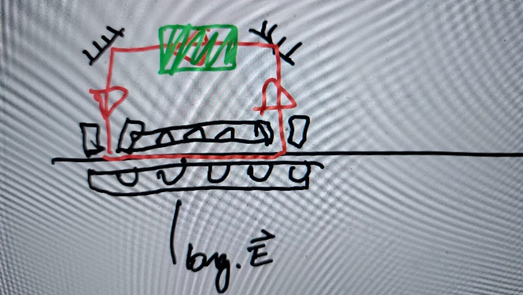 long. E⃗